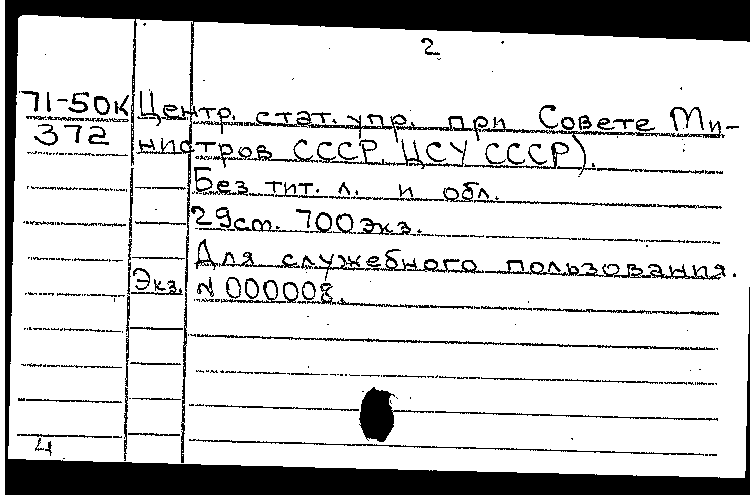 2
71-50к Центр. стат. упр. при Совете Ми-
372 нистров СССР. ЦСУ СССР).
Без тит. л. и обл.
29см. 700 экз.
Для служебного пользования.
Экз. N 000008.
4